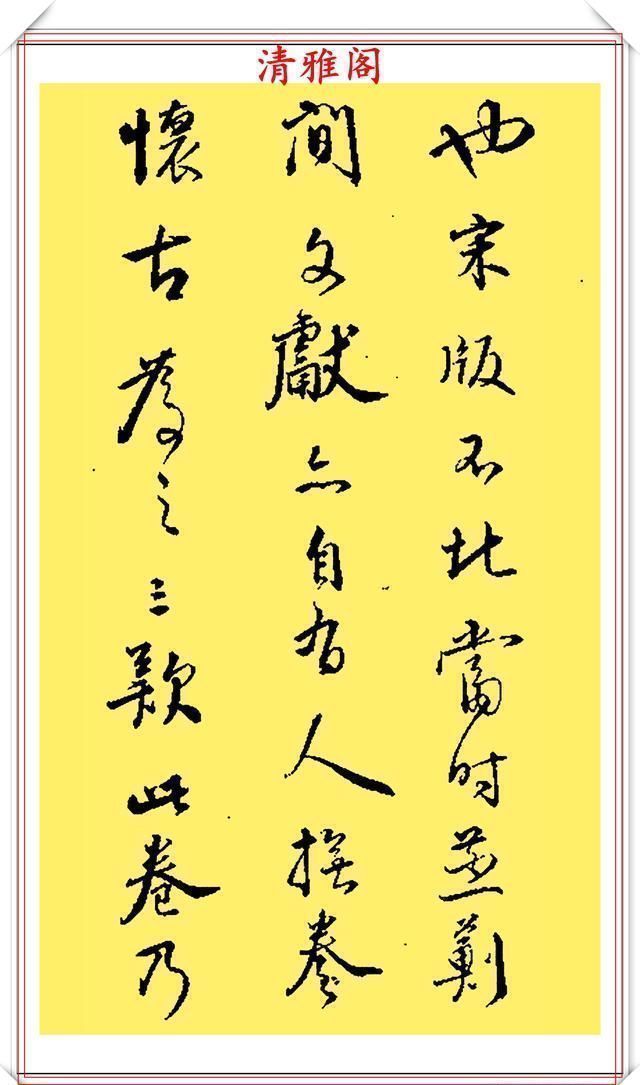 清雅阁
也宋版不比當時燕薊
間文獻亦自有人撫卷
懷古為之三歎此卷乃